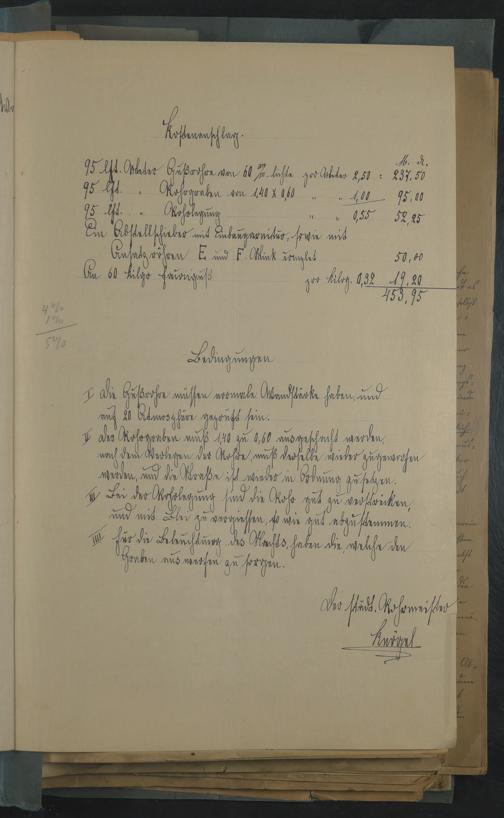 Kostenanschlag.
M. d.
95 lft. Meter Gußrohre von 60 m/m lichte pro Meter 2,50 = 237,50
95 lft. " Rohrgraben von 1,40 x 0,60 " " 1,00 95,00
95 lft. " Rohrlegung " " 0,55 52,25
Ein Abstellschieber mit Einbaugarnitur, sowie mit
Ansatzröhren E und F Stück complet 50,00
An 60 Kilgr. Façonguß pro Kilog. 0,32 19,20
453,95
4%
1%
5%
Bedingungen
I Die Gußrohre müssen normale Wandstärke haben, und
auf 20 Atmosphäre geprüft sein.
II Der Rohrgraben muß 1,40 zu 0,60 ausgeschacht werden,
nach dem Verlegen der Rohre, muß derselbe wieder zugeworfen
werden, und die Straße ist wieder in Ordnung zu setzen.
III Bei der Rohrlegung sind die Rohr gut zu verstricken,
und mit Blei zu vergiessen, so wie gut abzustemmen.
IIII Für die Beleuchtung des Nachts, haben die, welche den
Graben aus werfen zu sorgen.
Der städt. Rohrmeister